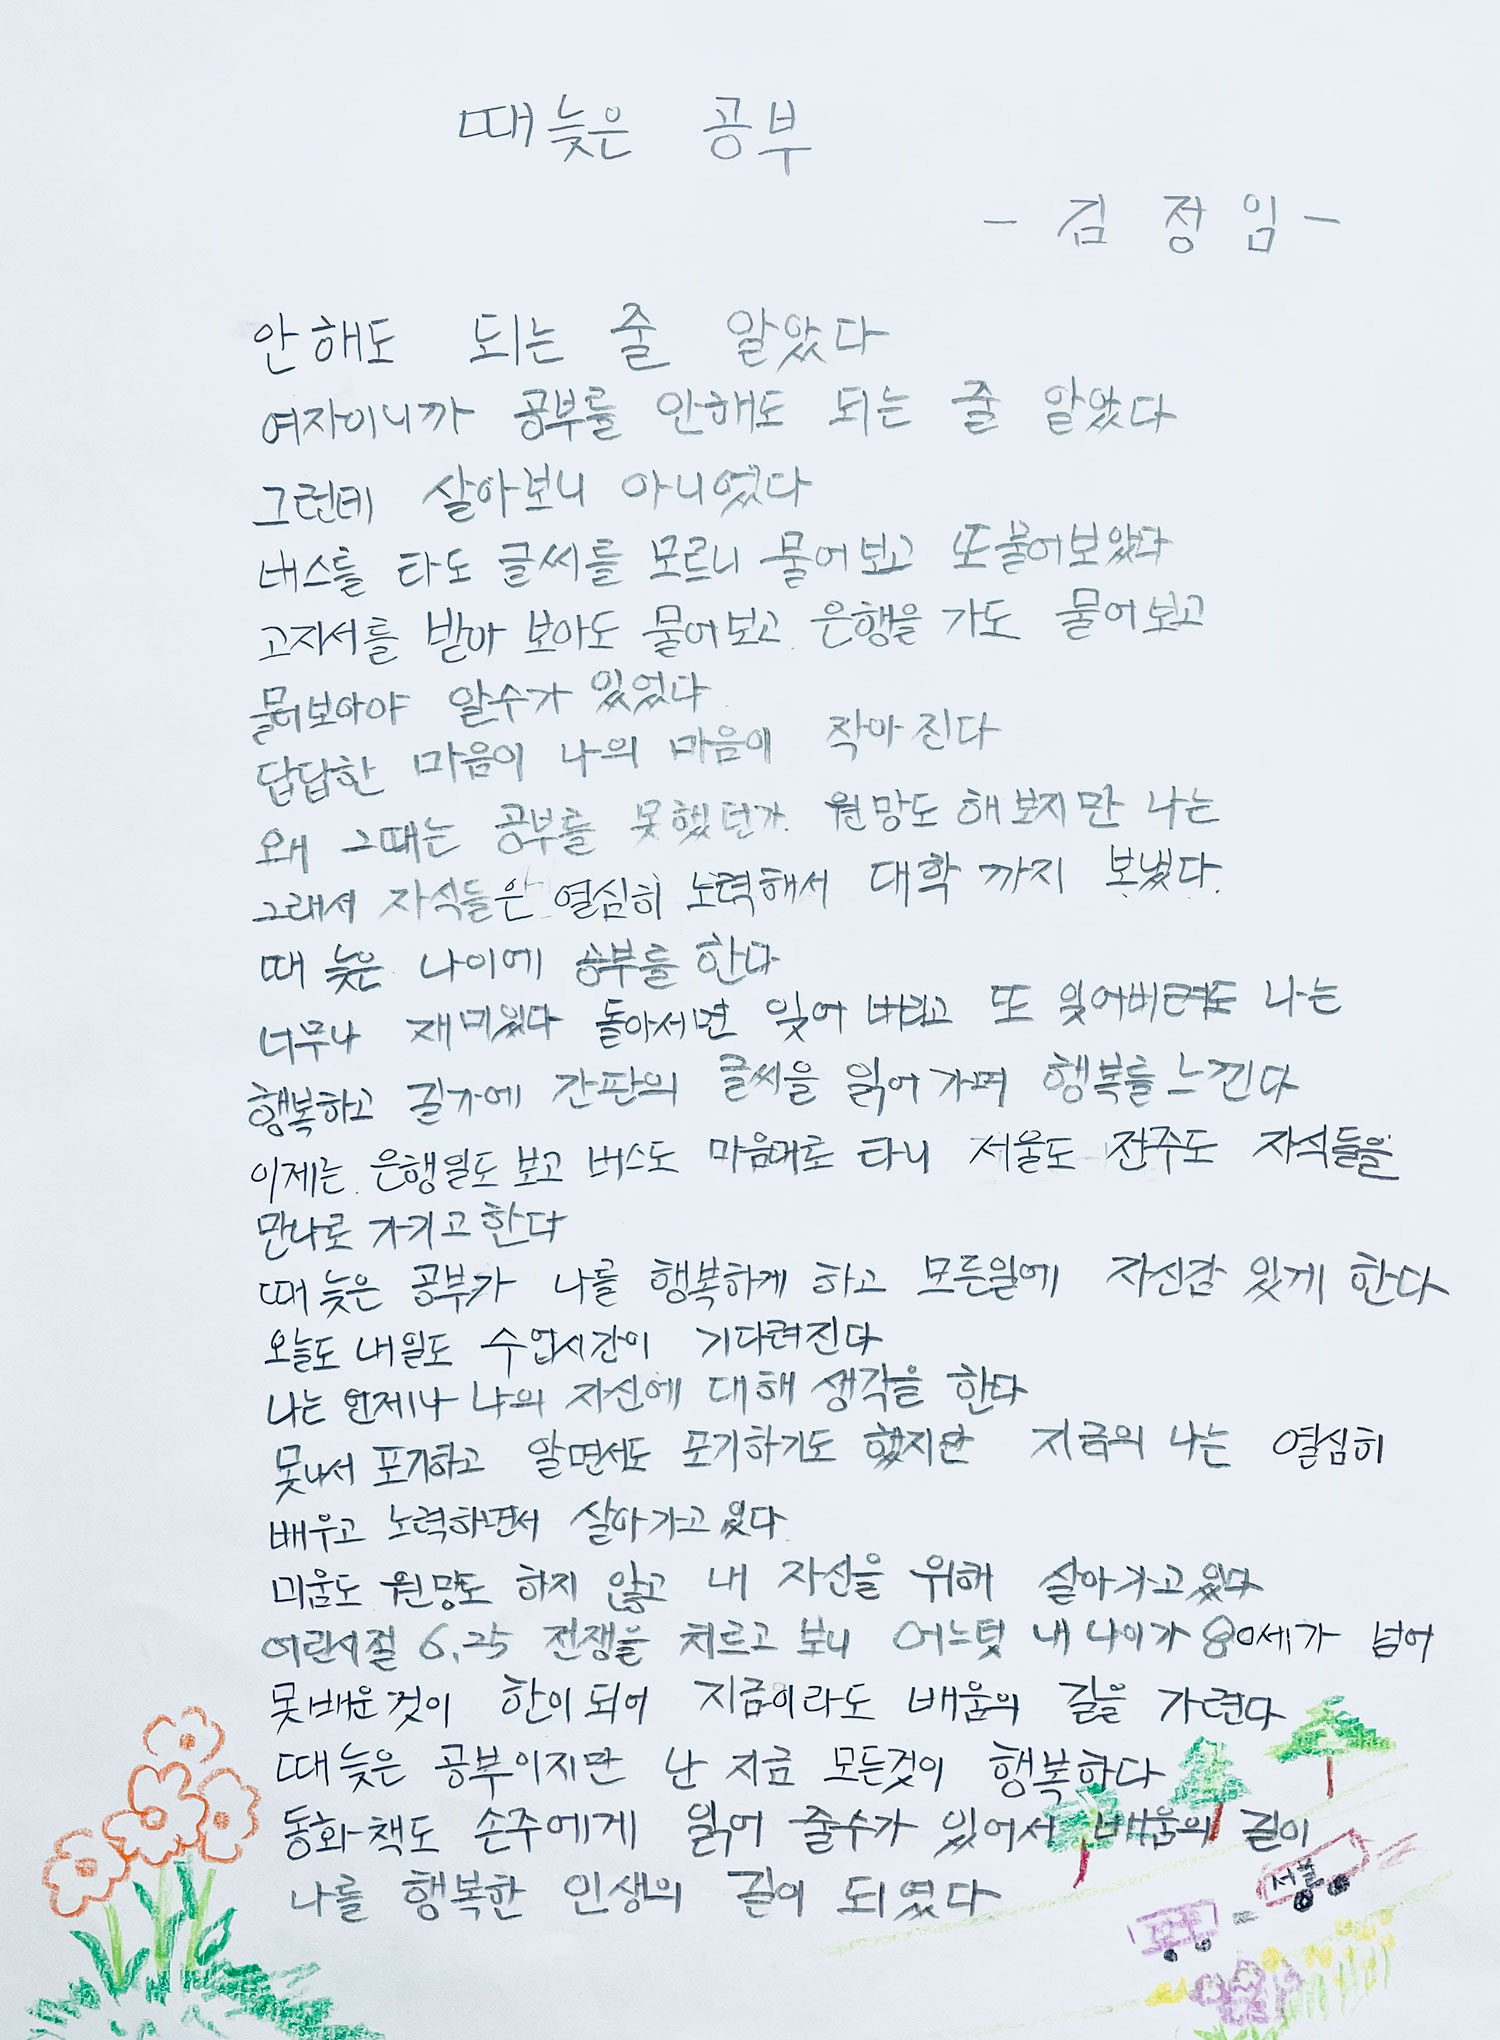 때늦은 공부
- 김 정 임 -
안해도 되는 줄 알았다
여자이니까 공부를 안해도 되는 줄 알았다
그런데 살아보니 아니였다
버스를 타도 글씨를 모르니 물어보고 또 물어보았다
고지서를 받아 보아도 물어보고 은행을 가도 물어보고
물어보아야 알수가 있었다
답답한 마음이 나의 마음이 작아진다
왜 그때는 공부를 못했던가. 원망도 해보지만 나는
그래서 자식들은 열심히 노력해서 대학 까지 보냈다.
때 늦은 나이에 공부를 한다
너무나 재미있다 돌아서면 잊어 버리고 또 잊어버려도 나는
행복하고 길가에 간판의 글씨을 읽어가며 행복를 느낀다
이제는 은행일도 보고 버스도 마음대로 타니 서울도 전주도 자식들을
만나로 가기고 한다
때 늦은 공부가 나를 행복하게 하고 모든일에 자신감 있게 한다
오늘도 내일도 수업시간이 기다려진다
나는 언제나 나의 자신에 대해 생각을 한다
못나서 포기하고 알면서도 포기하기도 했지만 지금의 나는 열심히
배우고 노력하면서 살아가고 있다
미움도 원망도 하지 않고 내 자신을 위해 살아가고 있다
어린시절 6.25 전쟁을 치르고 보니 어느덫 내 나이가 80세가 넘어
못배운것이 한이되어 지금이라도 배움의 길을 가련다
때늦은 공부이지만 난 지금 모든것이 행복하다
동화책도 손주에게 읽어 줄수가 있어서 배움의 길이
나를 행복한 인생의 길이 되였다
서울